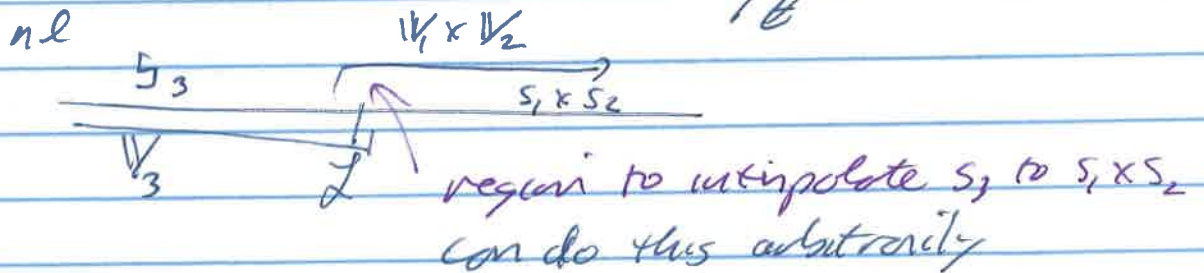 n l
𝕍₁ x 𝕍₂
S₃
S₁ x S₂
𝕍₃
L
region to interpolate S₃ to S₁ x S₂
can do this arbitrarily